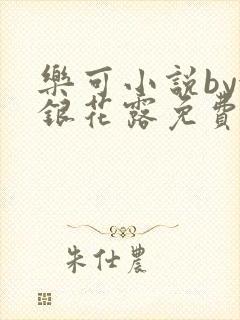 樂可小説by
銀花露免費
朱仕農